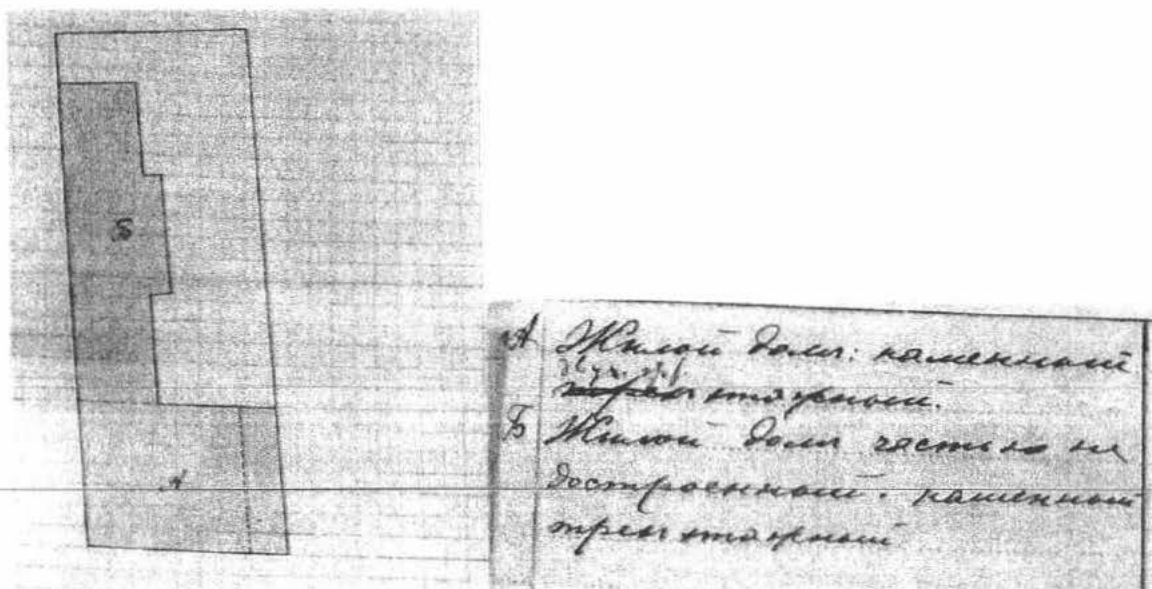 Б
А
А Жилой домъ: каменный
двух трехэтажный.
Б Жилой домъ частью не
достроенный. каменный
трехэтажный